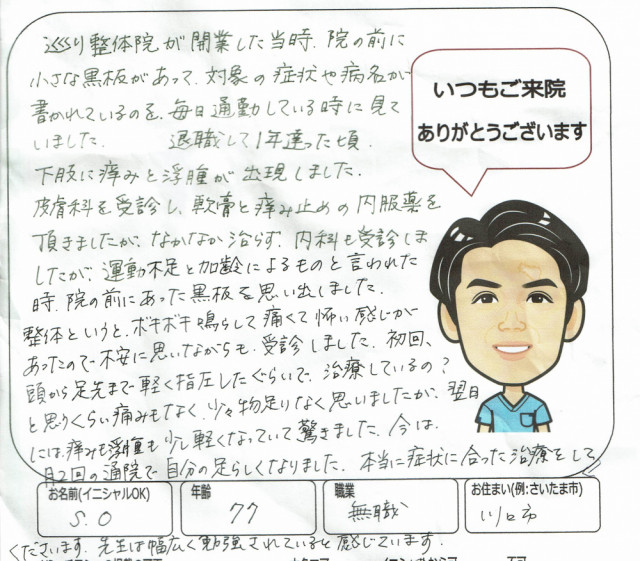 巡り整体院が開業した当時、院の前に
小さな黒板があって、対象の症状や病名が
書かれているのを、毎日通勤している時に見て
いました。 退職して1年違った頃、
下肢に痒みと浮腫が出現しました。
皮膚科を受診し、軟膏と痒み止めの内服薬を
頂きましたが、なかなか治らず、内科も受診しま
したが、運動不足と加齢によるものと言われた
時、院の前にあった黒板を思い出しました。
整体というと、ボキボキ鳴らして痛くて怖い感じが
あったので不安に思いながらも、受診しました。初回、
頭から足先まで軽く指圧したぐらいで、治療しているの?
と思うくらい痛みもなく、少々物足りなく思いましたが、翌日
には痒みも浮腫も少し軽くなっていて、驚きました。今は、
月2回の通院で自分の足らしくなりました。本当に症状に合った治療をして
いつもご来院
ありがとうございます
お名前(イニシャルOK) 年齢 職業 お住まい(例:さいたま市)
S.O 77 無職 川口市
くださいます。先生は幅広く勉強されていると感じています。